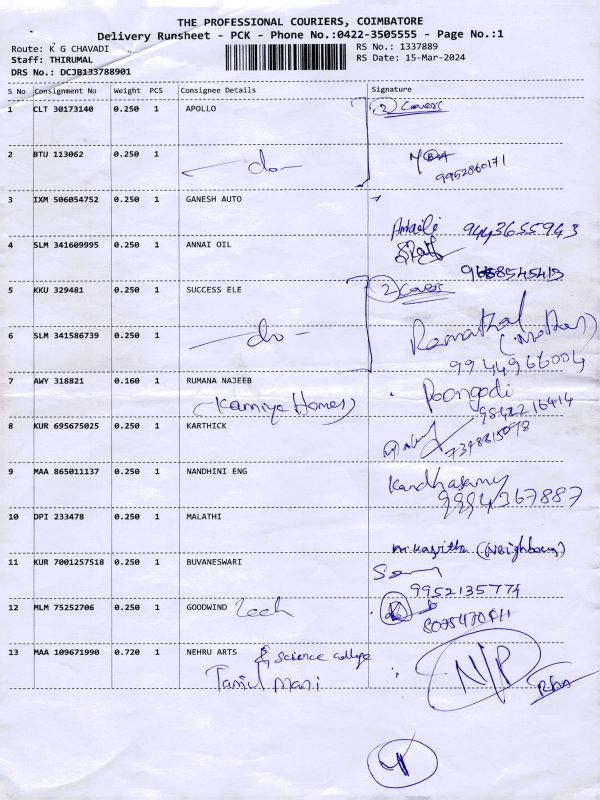 THE PROFESSIONAL COURIERS, COIMBATORE
Delivery Runsheet - PCK - Phone No.:0422-3505555 - Page No.:1
Route: K G CHAVADI
RS No.: 1337889
Staff: THIRUMAL
RS Date: 15-Mar-2024
DRS No.: DCJB133788901
S No Consignment No Weight PCS Consignee Details Signature
1 CLT 30173140 0.250 1 APOLLO (2) Covers
2 BTU 113062 0.250 1 -do-
9952860171
3 IXM 506054752 0.250 1 GANESH AUTO
9443655943
4 SLM 341609995 0.250 1 ANNAI OIL
5 KKU 329481 0.250 1 SUCCESS ELE (2) Covers
6 SLM 341586739 0.250 1 -do- Ramathal (Mother)
9944966004
7 AWY 318821 0.160 1 RUMANA NAJEEB Poongodi
(Kamiya Homes) 9842216414
8 KUR 695675025 0.250 1 KARTHICK
9 MAA 865011137 0.250 1 NANDHINI ENG Kandhasamy
9994367887
10 DPI 233478 0.250 1 MALATHI
M.Kavitha (Neighbour)
11 KUR 7001257518 0.250 1 BUVANESWARI
9952135774
12 MLM 75252706 0.250 1 GOODWIND Tech
13 MAA 109671990 0.720 1 NEHRU ARTS & science college
Tamil mani